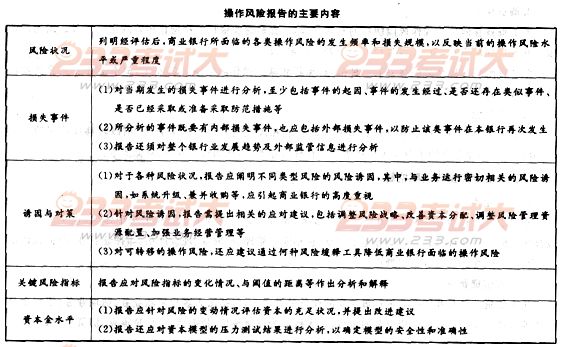 操作风险报告的主要内容
风险状况
列明经评估后,商业银行所面临的各类操作风险的发生频率和损失规模,以反映当前的操作风险水
平或严重程度
损失事件
(1)对当期发生的损失事件进行分析,至少包括事件的起因、事件的发生经过、是否还存在类似事件、
是否已经采取或准备采取防范措施等
(2)所分析的事件既要有内部损失事件,也应包括外部损失事件,以防止该类事件在本银行再次发生
(3)报告还须对整个银行业发展趋势及外部监管信息进行分析
诱因与对策
(1)对于各种风险状况,报告应阐明不同类型风险的风险诱因,其中,与业务运行密切相关的风险诱
因,如系统升级、兼并收购等,应引起商业银行的高度重视
(2)针对风险诱因,报告需提出相关的应对建议,包括调整风险战略、改善资本分配、调整风险管理资
源配置、加强业务经营管理等
(3)对可转移的操作风险,还应建议通过何种风险缓释工具降低商业银行面临的操作风险
关键风险指标
报告应对风险指标的变化情况、与阈值的距离等作出分析和解释
资本金水平
(1)报告应针对风险的变动情况评估资本的充足状况,并提出改进建议
(2)报告还应对资本模型的压力测试结果进行分析,以确定模型的安全性和准确性
233考试大
www.233.com